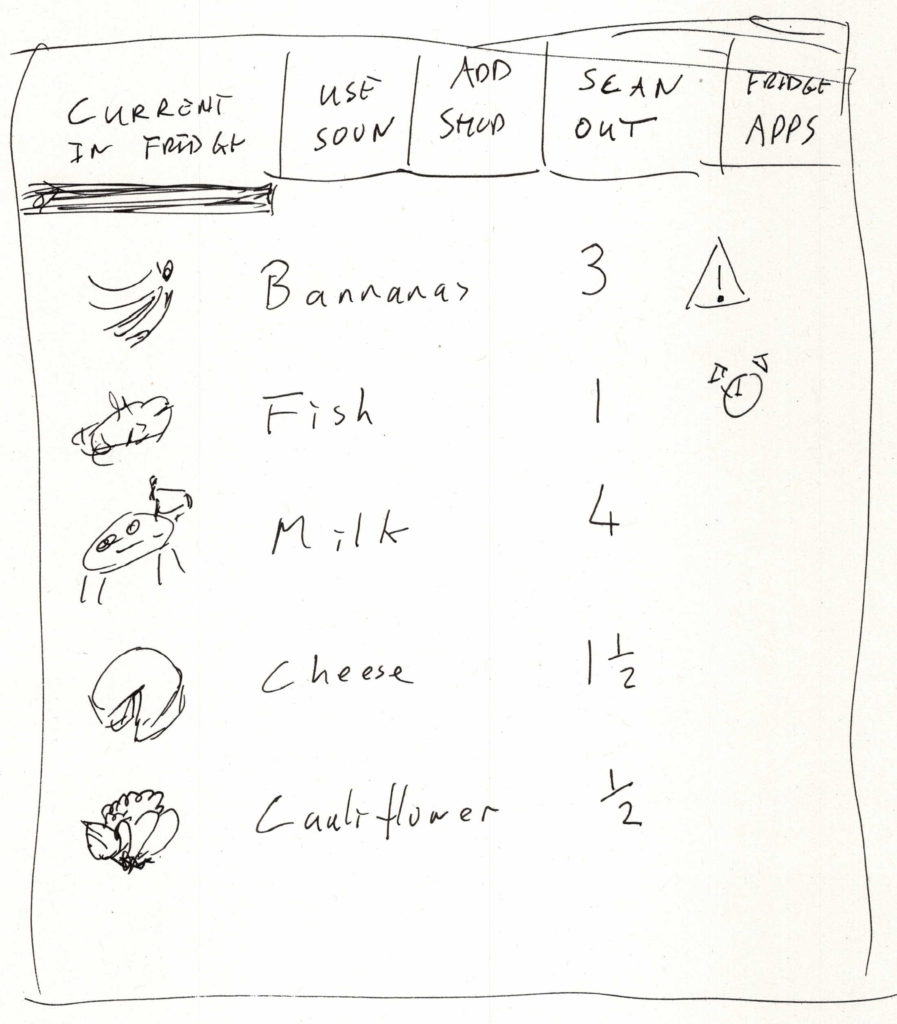 CURRENT
IN FRIDGE
USE
SOON
ADD
SCAN
OUT
FRIDGE
APPS
Bannanas 3 !
Fish 1
Milk 4
Cheese 1 1/2
Cauliflower 1/2